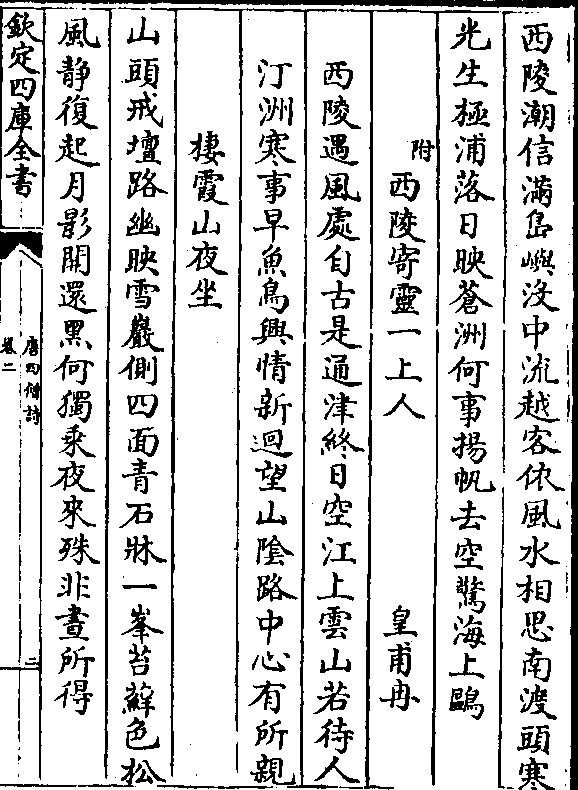 西陵潮信滿島嶼没中流越客依風水相思南渡頭寒
光生極浦落日映蒼洲何事揚帆去空驚海上鷗
附西陵寄靈一上人 皇甫冉
西陵遇風處自古是通津終日空江上雲山若待人
汀洲寒事早魚鳥興情新迴望山陰路中心有所親
棲霞山夜坐
山頭戒壇路幽映雪巖側四面青石牀一峯苔蘚色松
風静復起月影開還黑何獨乘夜來殊非晝所得
欽定四庫全書
唐四僧詩
卷二
二